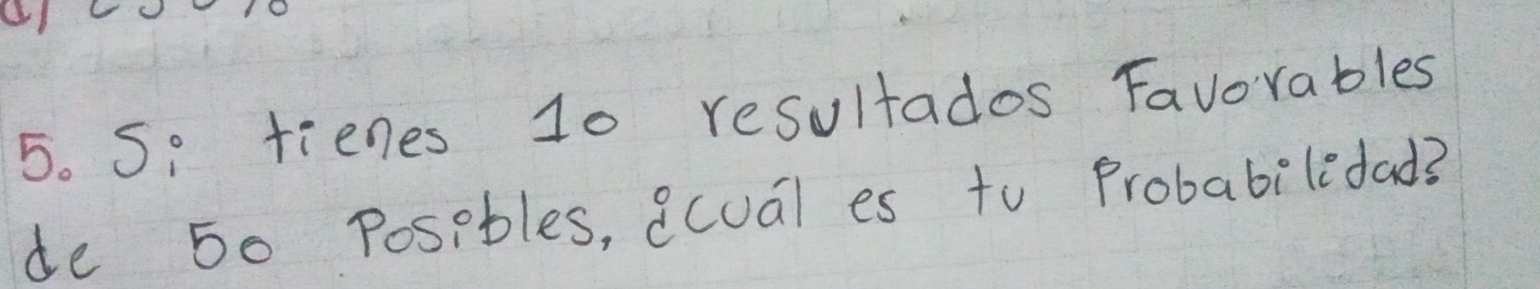 5. Si tienes 10 resultados Favorables
de 50 Posibles, ¿cuál es tu Probabilidad?